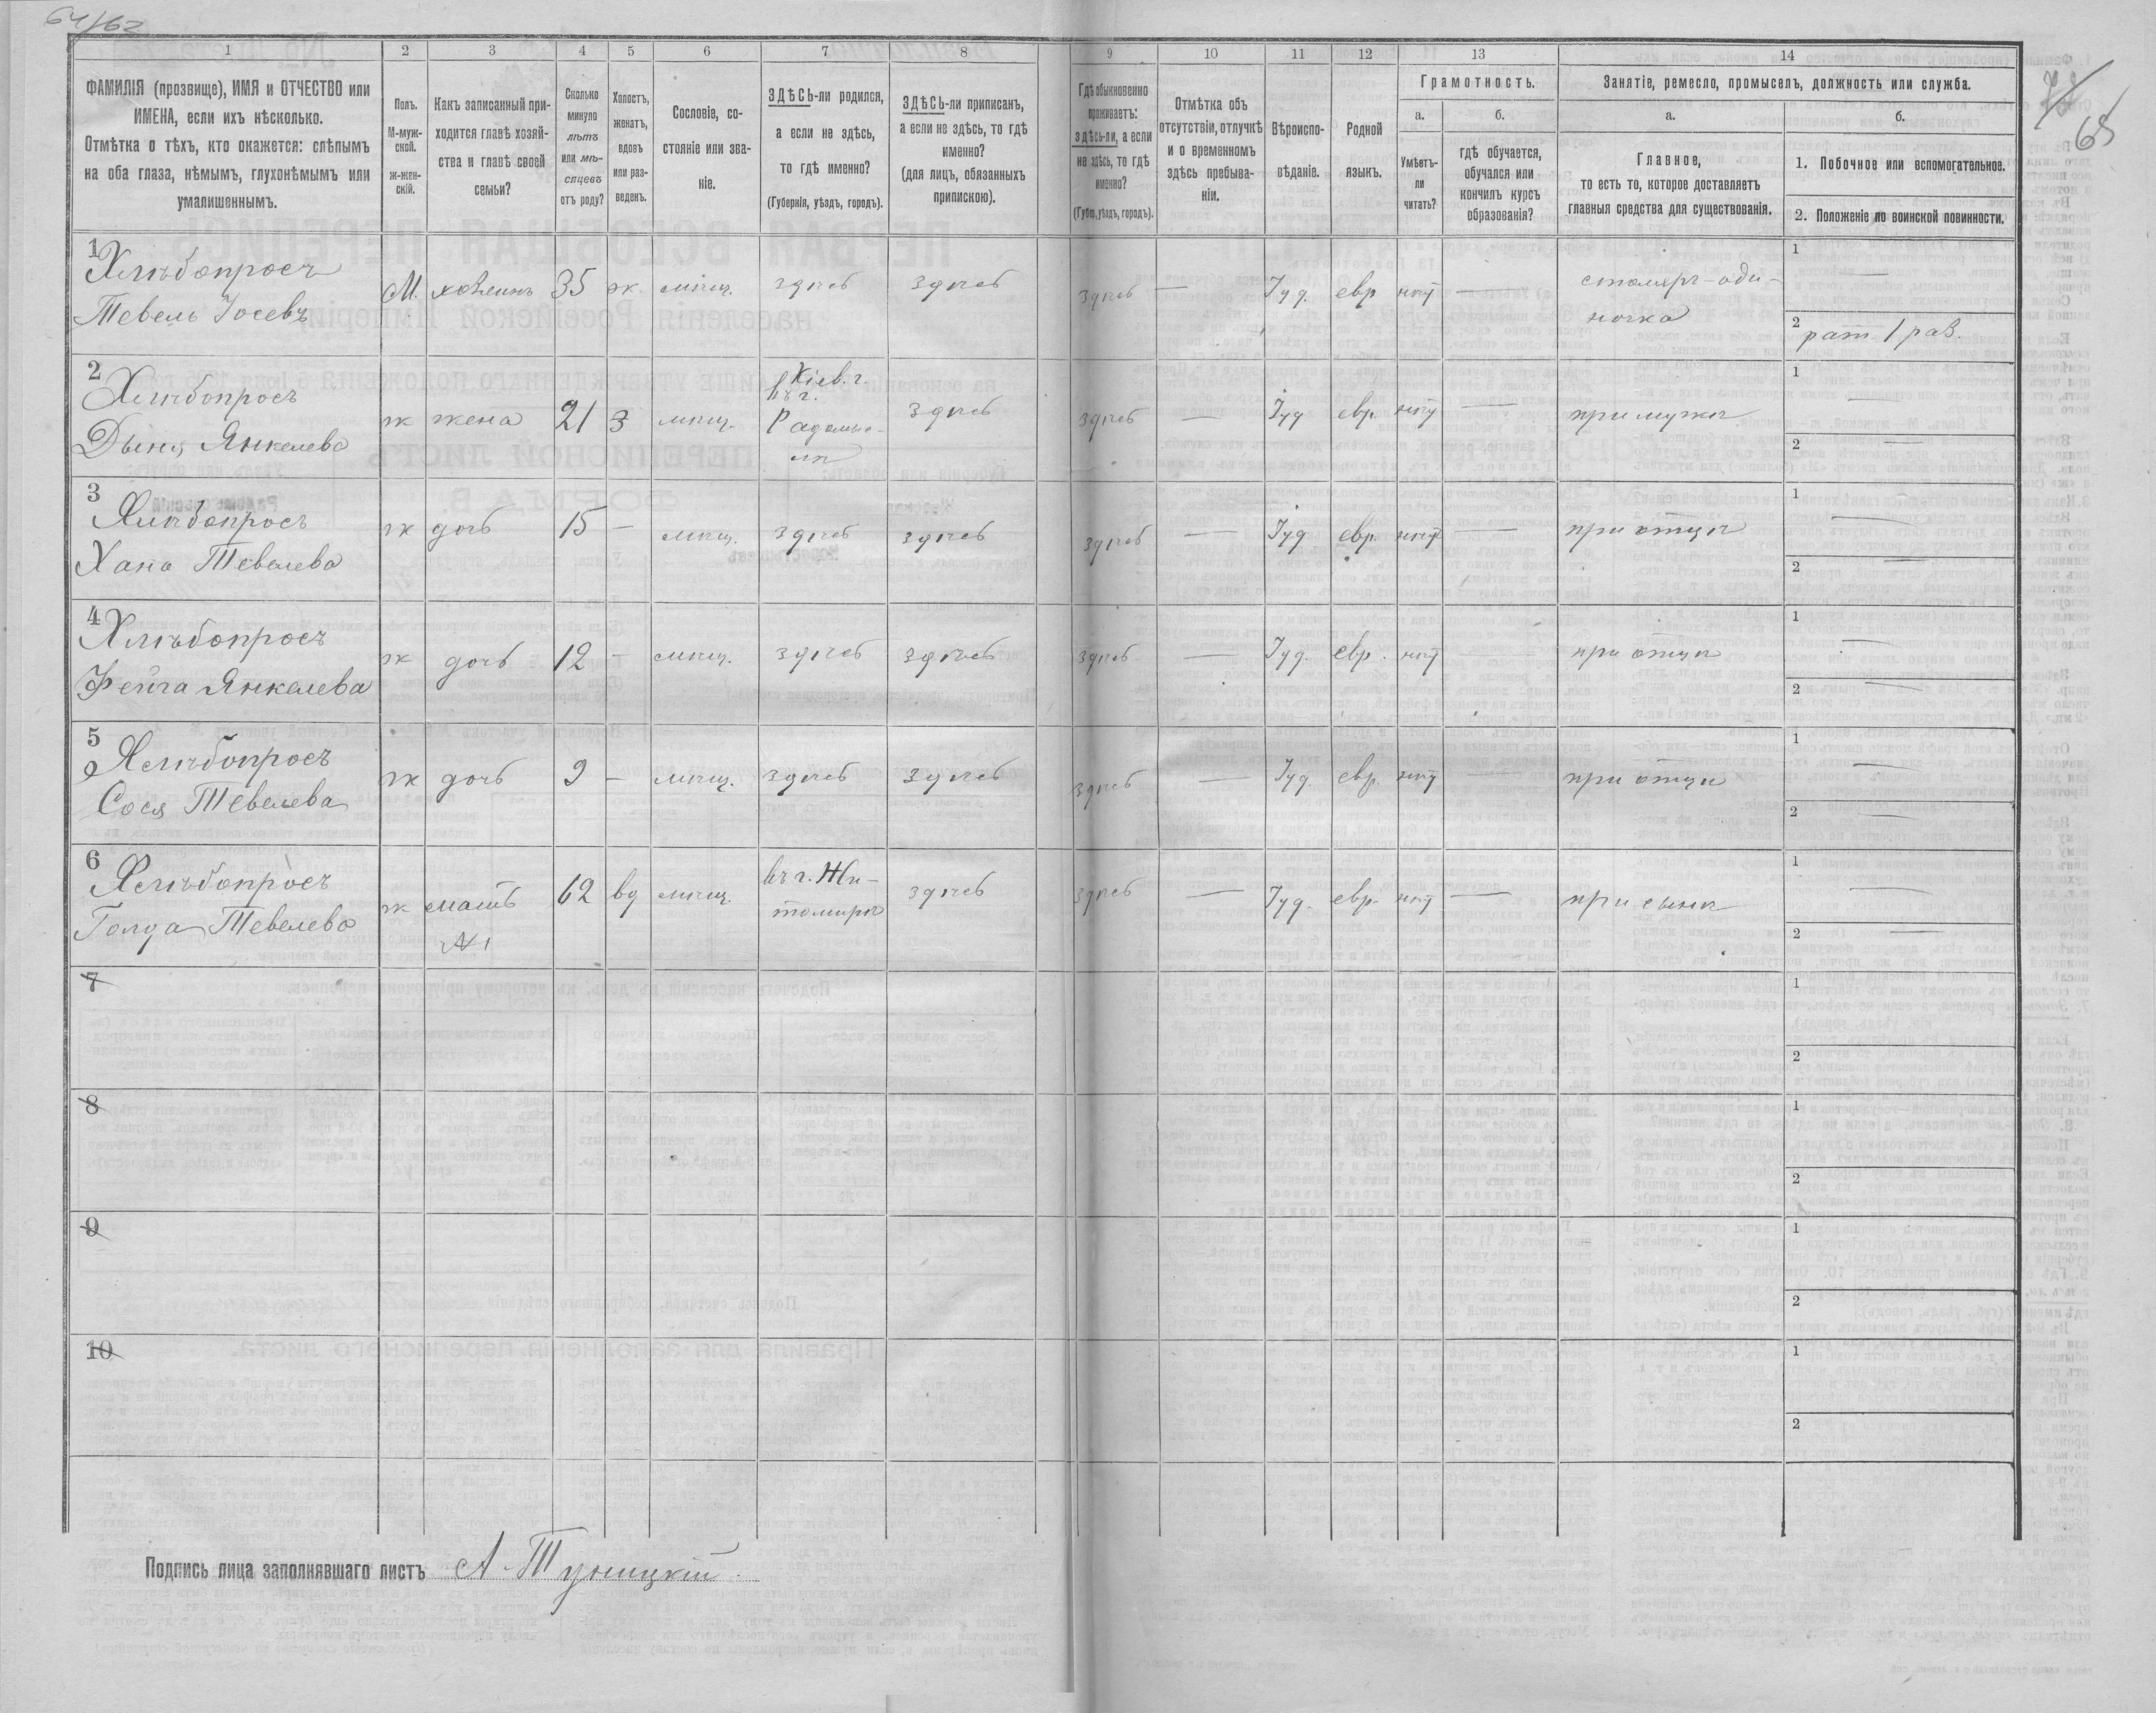 64/62
65
1 2 3 4 5 6 7 8 9 10 11 12 13 14
ФАМИЛІЯ (прозвище), ИМЯ и ОТЧЕСТВО или
ИМЕНА, если ихъ нѣсколько.
Отмѣтка о тѣхъ, кто окажется: слѣпымъ
на оба глаза, нѣмымъ, глухонѣмымъ или
умалишеннымъ.
Полъ.
М-муж-
ской.
ж-жен-
скій.
Какъ записанный при-
ходится главѣ хозяй-
ства и главѣ своей
семьи?
Сколько
минуло
лѣтъ
или мѣ-
сяцевъ
отъ роду?
Холостъ,
женатъ,
вдовъ
или раз-
веденъ.
Сословіе, со-
стояніе или зва-
ніе.
ЗДѢСЬ-ли родился,
а если не здѣсь,
то гдѣ именно?
(Губернія, уѣздъ, городъ).
ЗДѢСЬ-ли приписанъ,
а если не здѣсь, то гдѣ
именно?
(для лицъ, обязанныхъ
припискою).
Гдѣ обыкновенно
проживаетъ:
здѣсь-ли, а если
не здѣсь, то гдѣ
именно?
(Губ., уѣздъ, городъ).
Отмѣтка объ
отсутствіи, отлучкѣ
и о временномъ
здѣсь пребыва-
ніи.
Вѣроиспо-
вѣданіе.
Родной
языкъ.
Грамотность.
а.
Умѣетъ-
ли
читать?
б.
гдѣ обучается,
обучался или
кончилъ курсъ
образованія?
Занятіе, ремесло, промыселъ, должность или служба.
а.
Главное,
то есть то, которое доставляетъ
главныя средства для существованія.
б.
1. Побочное или вспомогательное.
2. Положеніе по воинской повинности.
1
Хлѣбопросъ
Тевель Іосевъ
М. хозяинъ 35 ж. мѣщ. здѣсь здѣсь здѣсь — Іуд. евр нѣт —
столяръ-оди-
ночка
1 —
2 рат. 1 раз.
2
Хлѣбопросъ
Дыня Янкелева
ж жена 21 з мѣщ.
Кіев. г.
въ г.
Радомыс-
лѣ
здѣсь здѣсь — Іуд евр. нѣт — при мужѣ
1 —
2 —
3
Хлѣбопросъ
Хана Тевелева
ж дочь 15 — мѣщ. здѣсь здѣсь здѣсь — Іуд евр. нѣт — при отцѣ
1 —
2 —
4
Хлѣбопросъ
Фейга Янкелева
ж дочь 12 — мѣщ. здѣсь здѣсь здѣсь — Іуд. евр. нѣт — при отцѣ
1 —
2 —
5
Хлѣбопросъ
Сося Тевелева
ж дочь 9 — мѣщ. здѣсь здѣсь здѣсь — Іуд. евр. нѣт — при отцѣ
1 —
2 —
6
Хлѣбопросъ
Голда Тевелева
ж мать 62 вд мѣщ.
№ 1
въ г. Жи-
томирѣ
здѣсь здѣсь — Іуд. евр. нѣт — при сынѣ
1 —
2 —
7
1
2
8
1
2
9
1
2
10
1
2
Подпись лица заполнявшаго листъ А. Туницкій